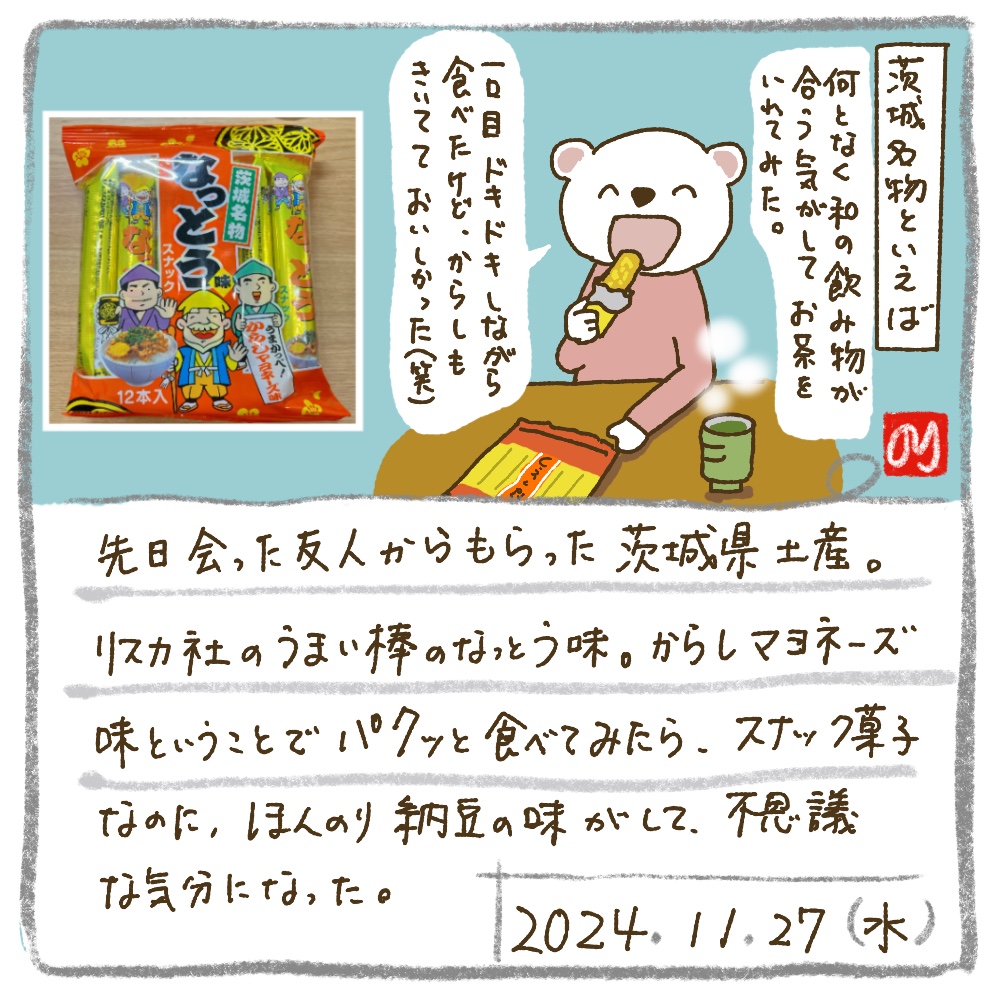 茨城名物といえば
何となく和の飲み物が
合う気がして お茶を
いれてみた。
一口目 ドキドキしながら
食べたけど、からしも
きいてて おいしかった(笑)
茨城名物
なっとう味
スナック
うまかっぺ!
からしマヨネーズ味
12本入
のり
先日会った友人からもらった 茨城県土産。
リスカ社のうまい棒のなっとう味。からしマヨネーズ
味ということで パクッと食べてみたら、スナック菓子
なのに、ほんのり納豆の味がして、不思議
な気分になった。
2024.11.27(水)